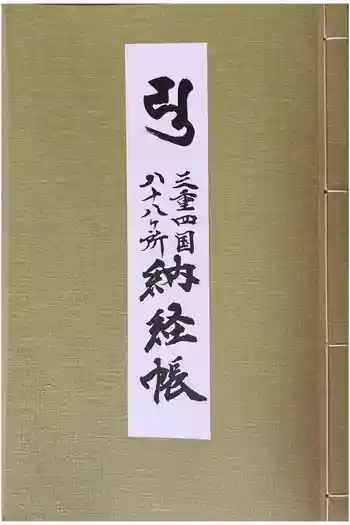 三重四国
八十八ヶ所
納経帳